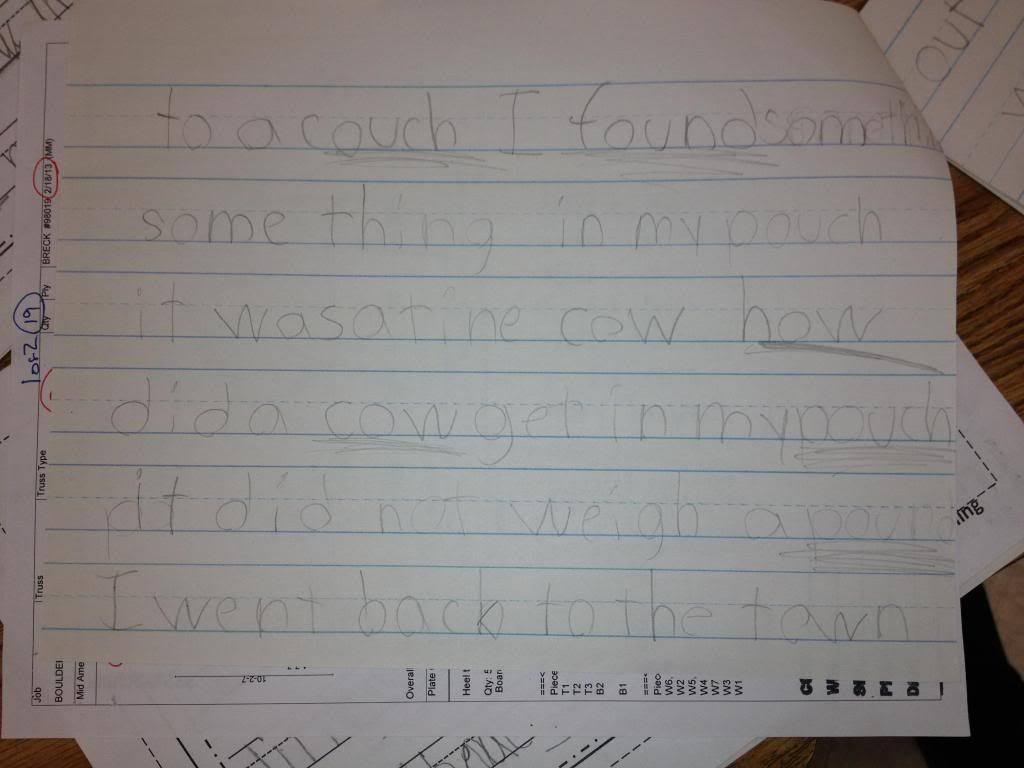 to a couch I foundsometh
some thing in my pouch
it wasatine cow how
did a cow get in my pouch
it did not weigh a pound
I went back to the town
out
ing
Job
Truss
Truss Type
Qty
Ply
BRECK #98019 2/18/13 (MM)
1 of 2 (19)
BOULDER
Mid Ame
10-2-7
Overall
Plate
Heel t
Qty: 5
Boar
===< Piece
T1
T2
T3
B2
B1
===< Piec
W6,
W2
W5,
W4
W7
W3
W1